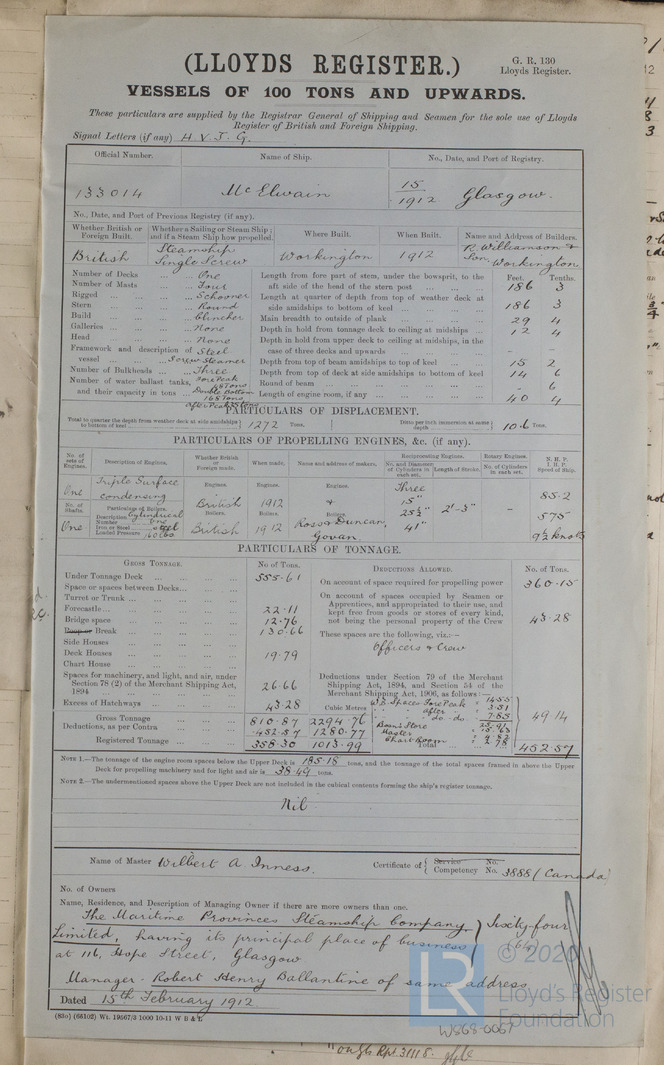 (LLOYDS REGISTER.)
G. R. 130
Lloyds Register.
VESSELS OF 100 TONS AND UPWARDS.
These particulars are supplied by the Registrar General of Shipping and Seamen for the sole use of Lloyds
Register of British and Foreign Shipping.
Signal Letters (if any) H V J G.
Official Number. Name of Ship. No., Date, and Port of Registry.
133014 McElwain 15/1912 Glasgow.
No., Date, and Port of Previous Registry (if any).
Whether British or Foreign Built. Whether a Sailing or Steam Ship; and if a Steam Ship how propelled. Where Built. When Built. Name and Address of Builders.
British Steamship Single Screw Workington 1912 R. Williamson & Son, Workington
Number of Decks One Length from fore part of stem, under the bowsprit, to the Feet. Tenths.
Number of Masts Four aft side of the head of the stern post 186 3
Rigged Schooner Length at quarter of depth from top of weather deck at
Stern Round side amidships to bottom of keel 186 3
Build Clincher Main breadth to outside of plank 29 4
Galleries None Depth in hold from tonnage deck to ceiling at midships 12 4
Head None Depth in hold from upper deck to ceiling at midships, in the
Framework and description of Steel case of three decks and upwards - -
vessel Screw Steamer Depth from top of beam amidships to top of keel 15 2
Number of Bulkheads Three Depth from top of deck at side amidships to bottom of keel 14 6
Number of water ballast tanks, Fore Peak Round of beam - 6
and their capacity in tons Double Bottom 168 Tons Length of engine room, if any 40 4
After Peak
PARTICULARS OF DISPLACEMENT.
Total to quarter the depth from weather deck at side amidships to bottom of keel 1272 Tons. Ditto per inch immersion at same depth 10.6 Tons.
PARTICULARS OF PROPELLING ENGINES, &c. (if any).
No. of sets of Engines. Description of Engines. Whether British or Foreign made. When made. Name and address of makers. Reciprocating Engines. Rotary Engines. N. H. P. I. H. P. Speed of Ship.
No. and Diameter of Cylinders in each set. Length of Stroke. No. of Cylinders in each set.
One Triple Surface condensing Engines. British Engines. 1912 Engines. Three 15" 25½" 41" 2'-3" - 85.2
No. of Boilers. Particulars of Boilers. Boilers. Boilers. Boilers. 575
One Description Cylindrical British 1912 Ross & Duncan, Govan. 9½ knots
Number One
Iron or Steel Steel
Loaded Pressure 160 lbs
PARTICULARS OF TONNAGE.
GROSS TONNAGE. No of Tons. DEDUCTIONS ALLOWED. No. of Tons.
Under Tonnage Deck 555.61 On account of space required for propelling power 360.15
Space or spaces between Decks On account of spaces occupied by Seamen or
Turret or Trunk Apprentices, and appropriated to their use, and
Forecastle 22.11 kept free from goods or stores of every kind,
Bridge space 12.76 not being the personal property of the Crew 43.28
Poop or Break 130.66 These spaces are the following, viz.:—
Side Houses Officers & Crew
Deck Houses 19.79
Chart House
Spaces for machinery, and light, and air, under Deductions under Section 79 of the Merchant
Section 78 (2) of the Merchant Shipping Act, Shipping Act, 1894, and Section 54 of the
1894 26.66 Merchant Shipping Act, 1906, as follows:—
Excess of Hatchways 43.28 Cubic Metres W.B. Space Fore Peak 14.55
" after " 3.51
Gross Tonnage 810.87 2294.76 " do. do. 7.85 49.14
Deductions, as per Contra 452.57 1280.77 Bosn's Store
Registered Tonnage 358.30 1013.99 Master
Chart Room 2.78
Total 452.57
NOTE 1.—The tonnage of the engine room spaces below the Upper Deck is 185.18 tons, and the tonnage of the total spaces framed in above the Upper
Deck for propelling machinery and for light and air is 38.49 tons.
NOTE 2.—The undermentioned spaces above the Upper Deck are not included in the cubical contents forming the ship's register tonnage.
Nil
Name of Master Wilbert A Inness. Certificate of Service No.
Competency No. 3888 (Canada)
No. of Owners
Name, Residence, and Description of Managing Owner if there are more owners than one.
The Maritime Provinces Steamship Company Sixty-four
Limited, having its principal place of business (64)
at 116, Hope Street, Glasgow
Manager - Robert Henry Ballantine of same address
Dated 15th February 1912
(83o) (66102) Wt. 19567/3 1000 10-11 W B & L
© 2020
LR
Lloyd's Register
Foundation
W868-0067
Rpt 31118.